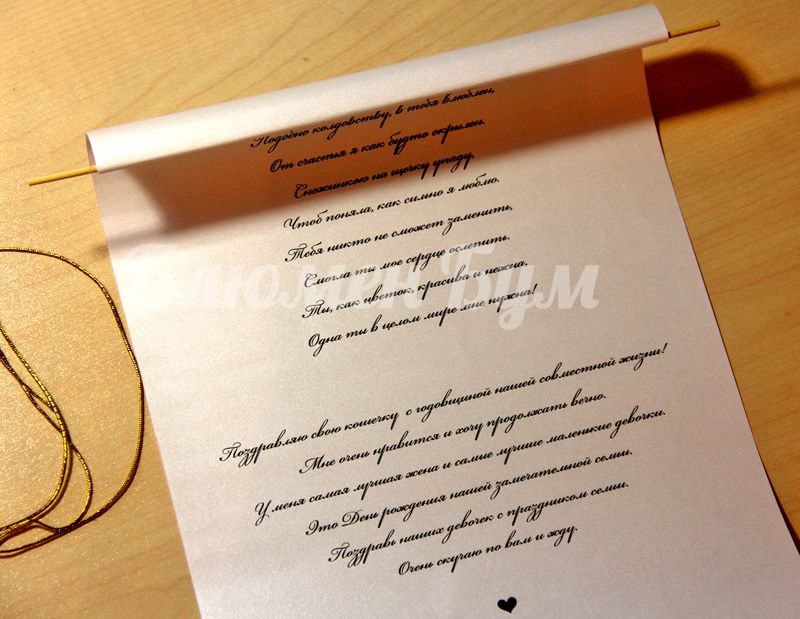 Подобно колдовству, в тебя влюблен,
От счастья я как будто окрилен.
Снежинкою на щечку упаду,
Чтоб поняла, как сильно я люблю.
Тебя никто не сможет заменить,
Смогла ты мое сердце ослепить.
Ты, как цветок, красива и нежна,
Одна ты в целом мире мне нужна!
Поздравляю свою кошечку с годовщиной нашей совместной жизни!
Мне очень нравится и хочу продолжать вечно.
У меня самая лучшая жена и самые лучшие маленькие девочки.
Это День рождения нашей замечательной семьи.
Поздравь наших девочек с праздником семьи.
Очень скучаю по вам и жду.
Бум